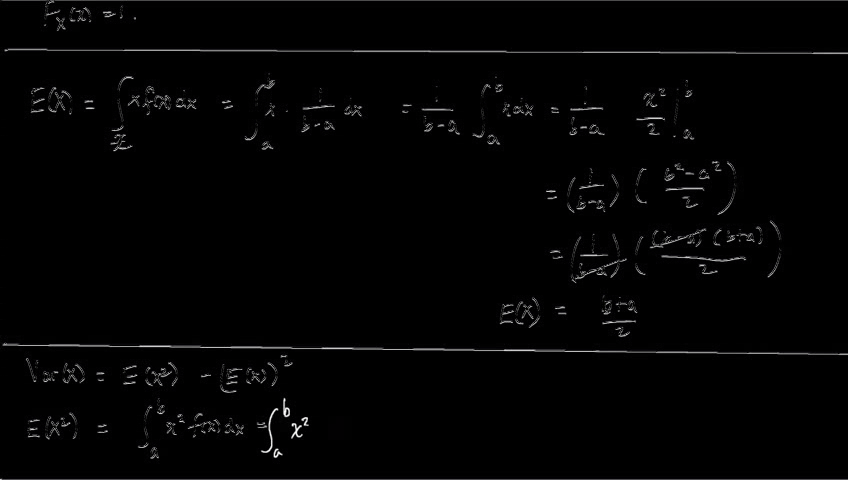 F_X(x) = 1.
E(X) = ∫_𝒳 x f(x) dx = ∫_a^b x · 1/(b-a) dx = 1/(b-a) ∫_a^b x dx = 1/(b-a) x²/2 |_a^b
= (1/(b-a)) ((b²-a²)/2)
= (1/(b-a)) ((b-a)(b+a)/2)
E(X) = (b+a)/2
Var(X) = E(X²) - (E(X))²
E(X²) = ∫_a^b x² f(x) dx = ∫_a^b x²